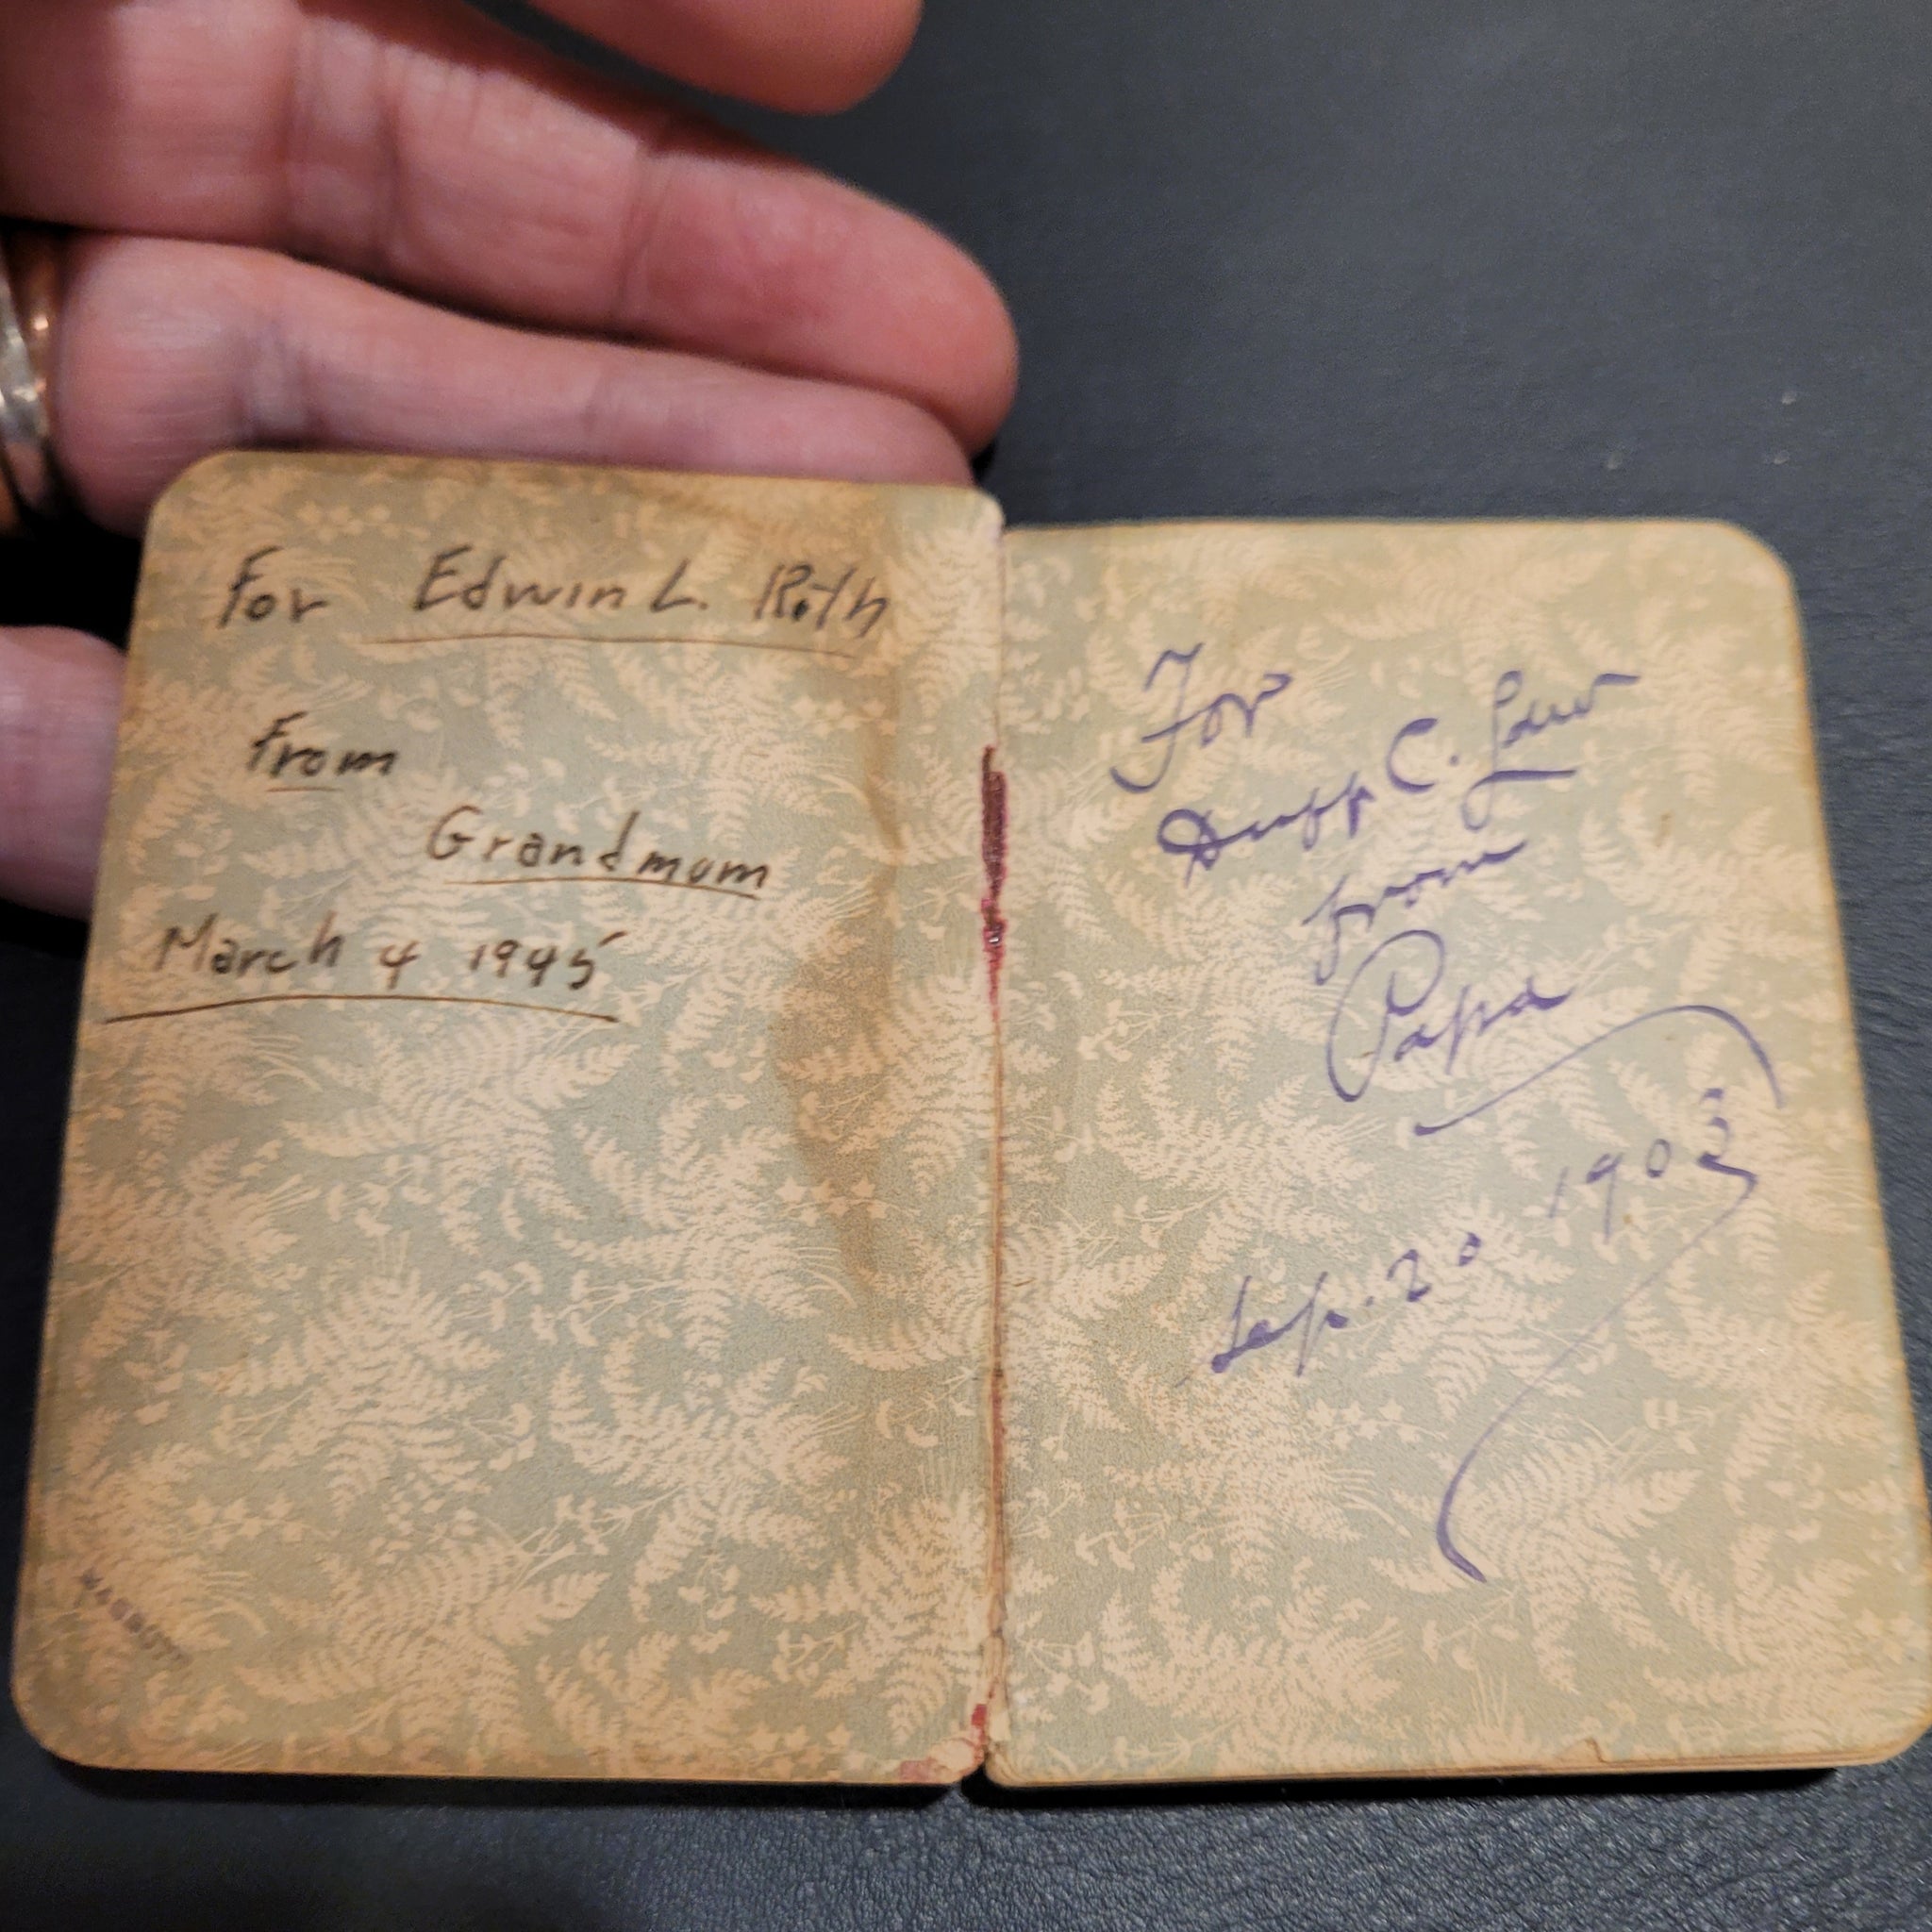 For Edwin L. Roth
From
Grandmom
March 4 1945
For
Duff C. Law
from
Papa
Sep. 20 1903